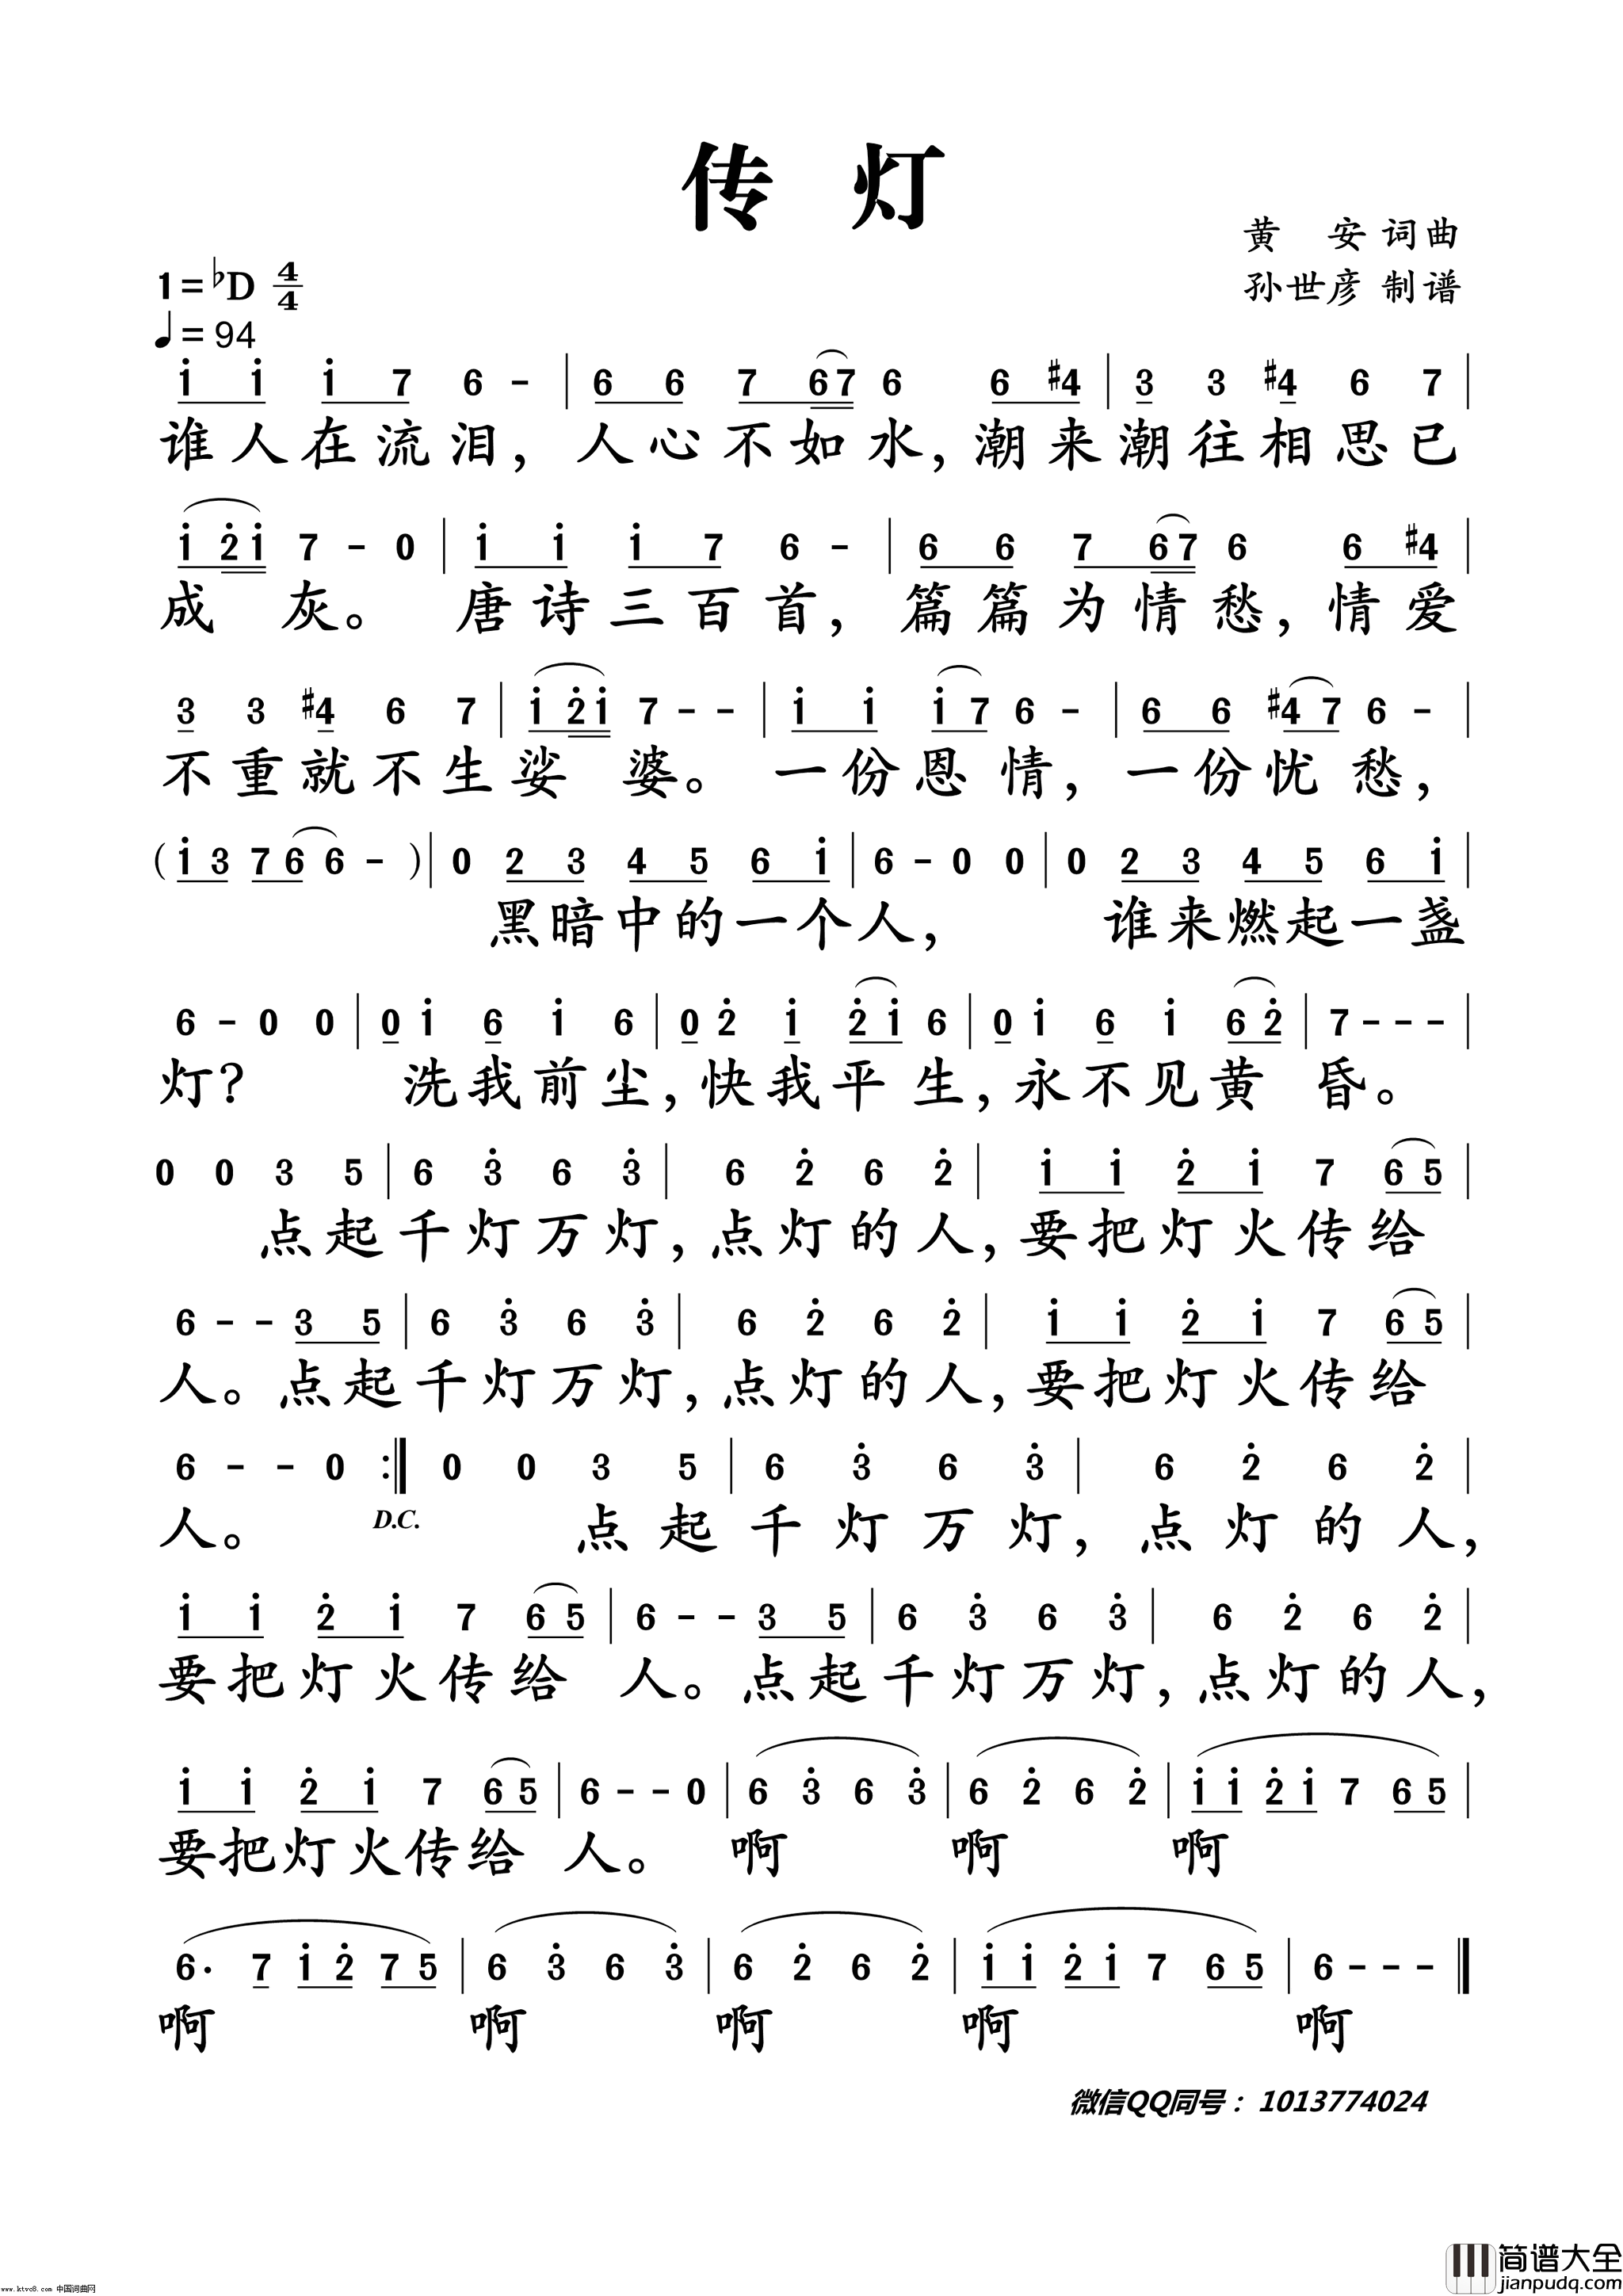 传 灯
黄 安 词曲
孙世彦 制谱
1=♭D 4/4
♩=94
i i i 7 6 - | 6 6 7 67 6 6 #4 | 3 3 #4 6 7 |
谁人在流泪，人心不如水，潮来潮往相思已
i 2̇i 7 - 0 | i i i 7 6 - | 6 6 7 67 6 6 #4 |
成 灰。 唐诗三百首，篇篇为情愁，情爱
3 3 #4 6 7 | i 2̇i 7 - - | i i i 7 6 - | 6 6 #4 7 6 - |
不重就不生娑 婆。一份恩情，一份忧愁，
( i 3 7 6 6 - ) | 0 2 3 4 5 6 i | 6 - 0 0 | 0 2 3 4 5 6 i |
黑暗中的一个人， 谁来燃起一盏
6 - 0 0 | 0 i 6 i 6 | 0 2̇ i 2̇ i 6 | 0 i 6 i 6 2̇ | 7 - - - |
灯？ 洗我前尘，快我平生，永不见黄 昏。
0 0 3 5 | 6 3̇ 6 3̇ | 6 2̇ 6 2̇ | i i 2̇ i 7 6 5 |
点起千灯万灯，点灯的人，要把灯火传给
6 - - 3 5 | 6 3̇ 6 3̇ | 6 2̇ 6 2̇ | i i 2̇ i 7 6 5 |
人。点起千灯万灯，点灯的人，要把灯火传给
6 - - 0 :| 0 0 3 5 | 6 3̇ 6 3̇ | 6 2̇ 6 2̇ |
人。 D.C. 点起千灯万灯，点灯的人，
i i 2̇ i 7 6 5 | 6 - - 3 5 | 6 3̇ 6 3̇ | 6 2̇ 6 2̇ |
要把灯火传给 人。点起千灯万灯，点灯的人，
i i 2̇ i 7 6 5 | 6 - - 0 | 6 3̇ 6 3̇ | 6 2̇ 6 2̇ | i i 2̇ i 7 6 5 |
要把灯火传给 人。 啊 啊 啊
6· 7 i 2̇ 7 5 | 6 3̇ 6 3̇ | 6 2̇ 6 2̇ | i i 2̇ i 7 6 5 | 6 - - - ‖
啊 啊 啊 啊 啊
微信QQ同号：1013774024
简谱大全
jianpudq.com
www.ktvc8.com 中国词曲网